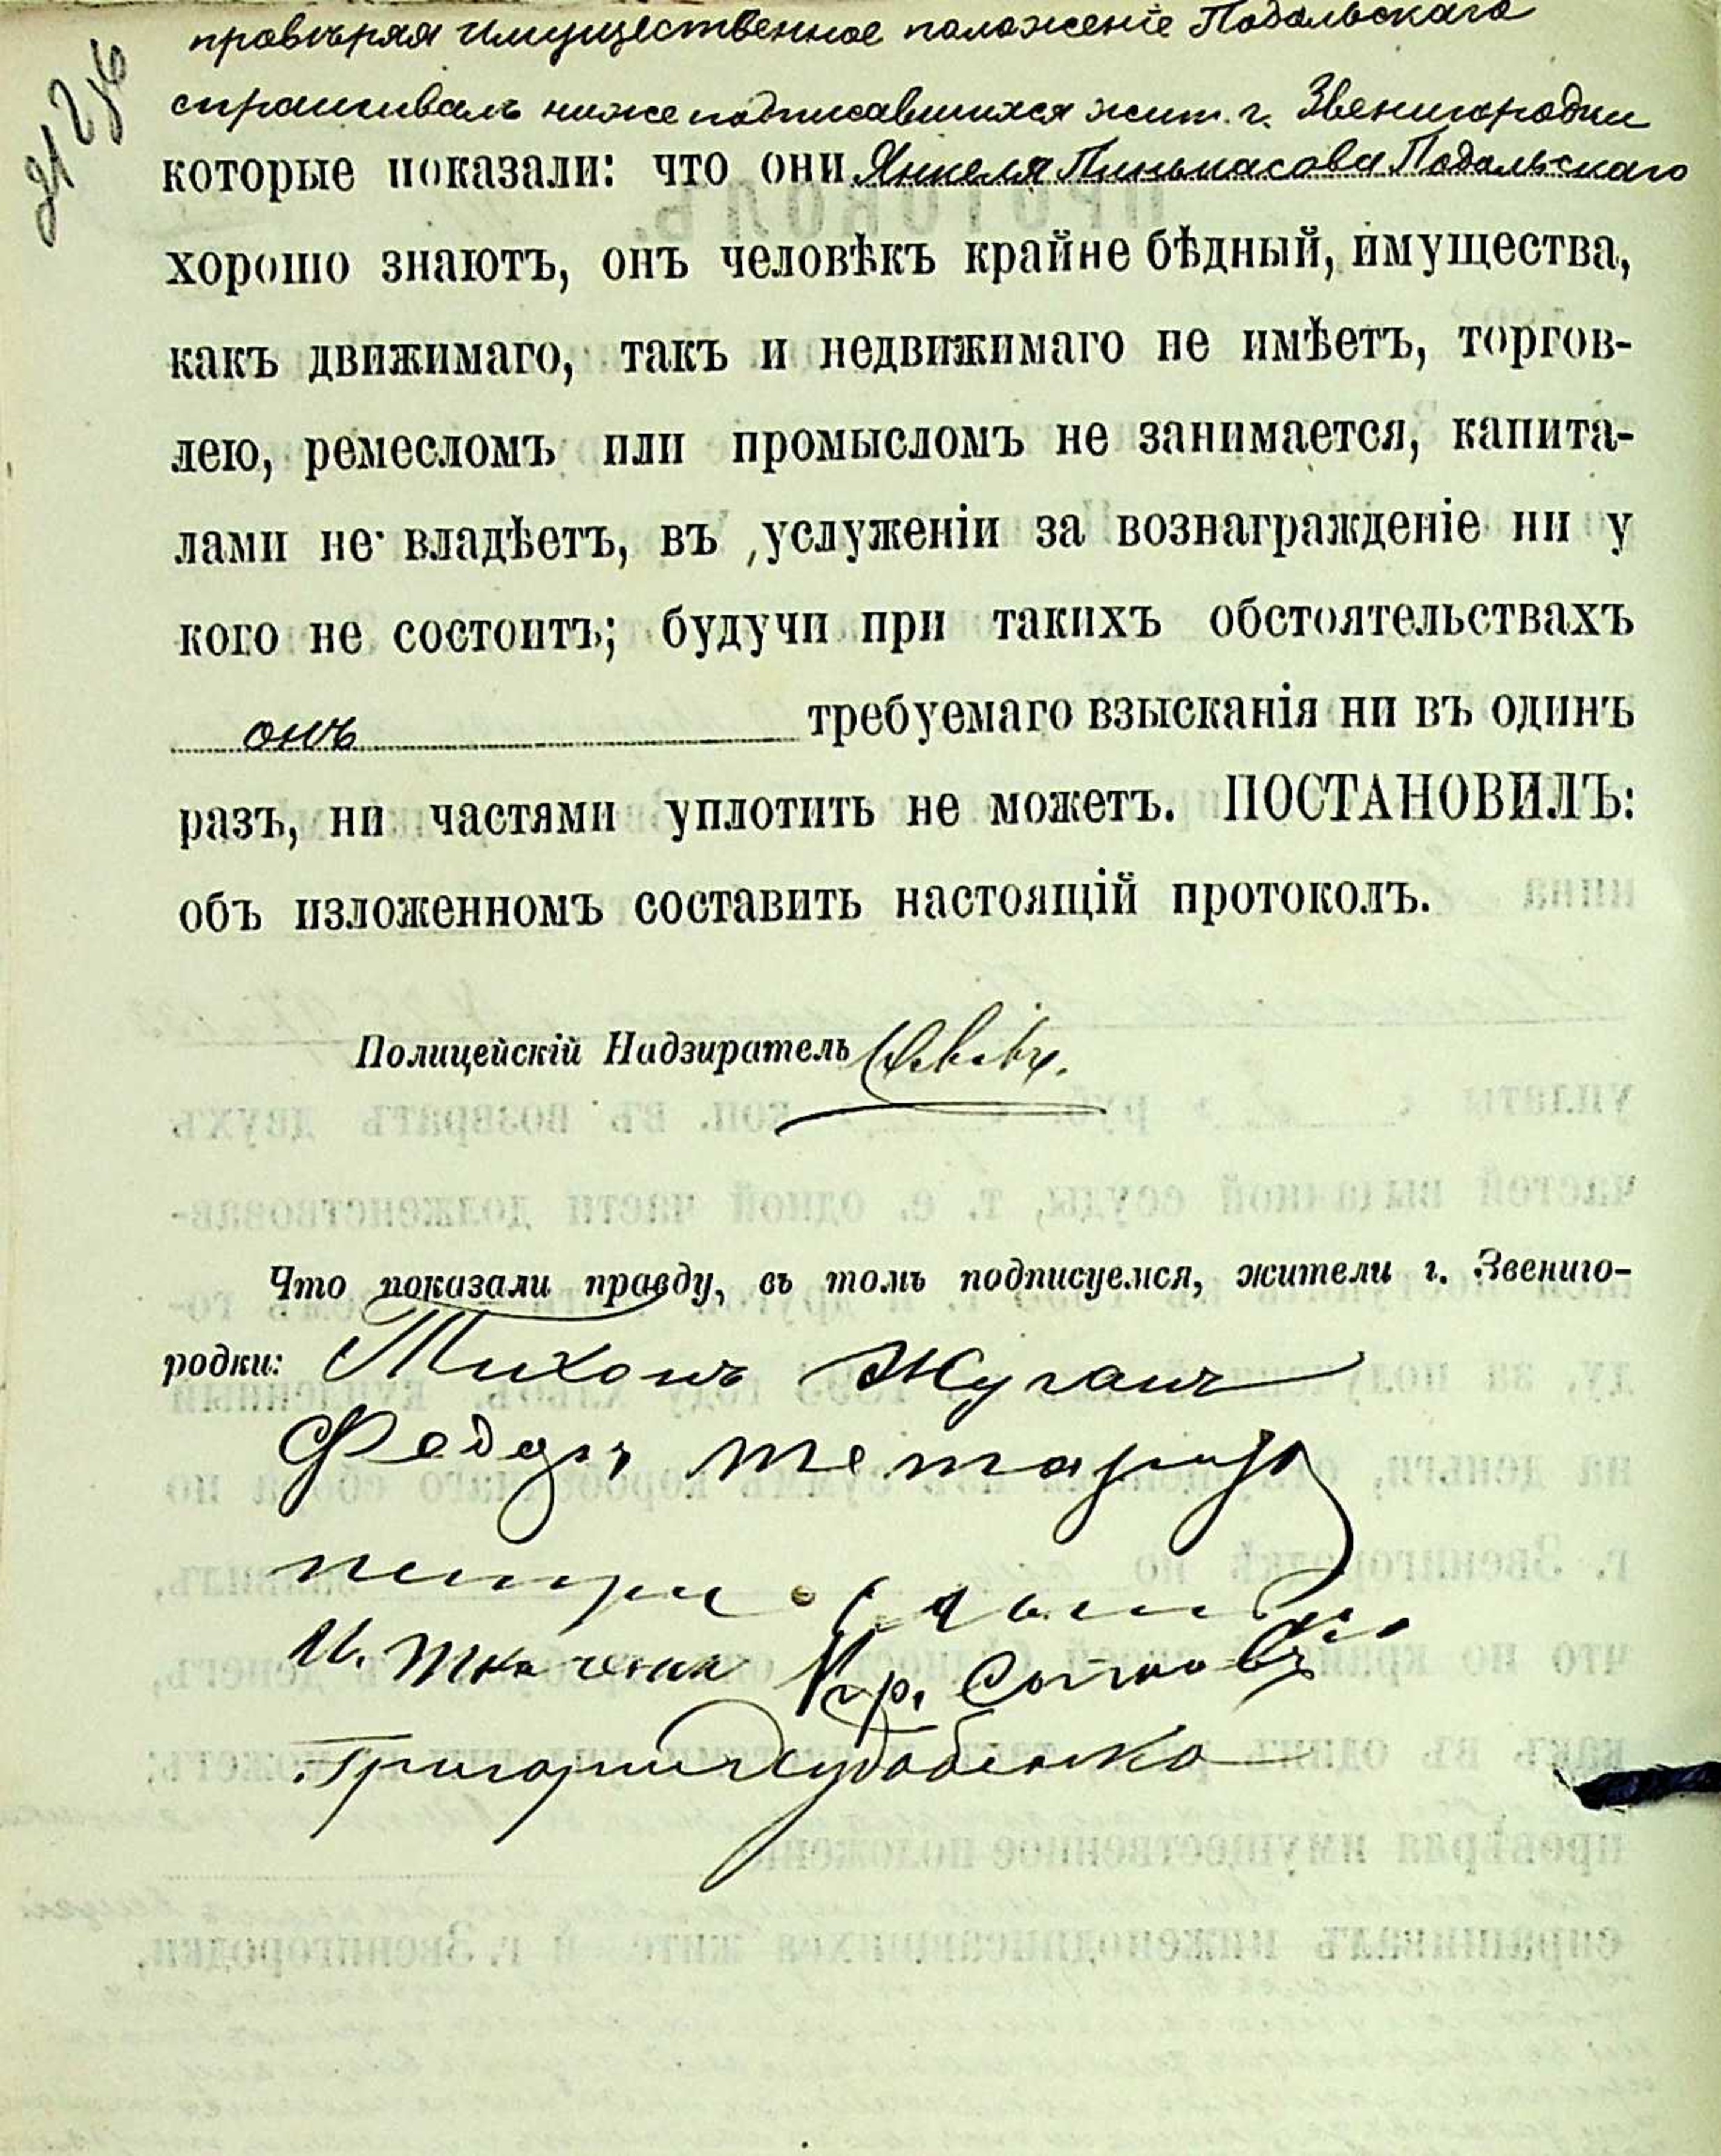 провѣряя имущественное положеніе Подольскаго
спрашивалъ нижеподписавшихся жит. г. Звенигородки
которые показали: что они Янкеля Пинькасова Подольскаго
хорошо знаютъ, онъ человѣкъ крайне бѣдный, имущества,
какъ движимаго, такъ и недвижимаго не имѣетъ, торгов-
лею, ремесломъ или промысломъ не занимается, капита-
лами не владѣетъ, въ услуженіи за вознагражденіе ни у
кого не состоитъ; будучи при такихъ обстоятельствахъ
онъ требуемаго взысканія ни въ одинъ
разъ, ни частями уплотить не можетъ. ПОСТАНОВИЛЪ:
объ изложенномъ составить настоящій протоколъ.
Полицейскій Надзиратель
Что показали правду, въ томъ подписуемся, жители г. Звениго-
родки: Тихонъ Жуганъ
Федоръ
И. Ткаченко
Григорій Худобенко